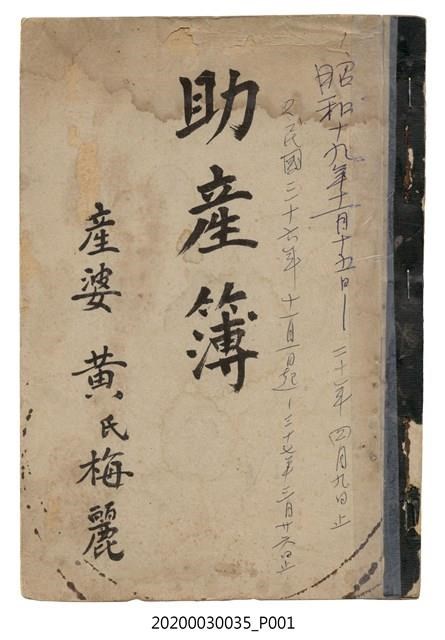 1、昭和十九年十一月十五日—二十一年四月九日止
2、民國三十六年十一月一日起—三十七年三月廿六日止
助產簿
產婆 黃氏梅麗
20200030035_P001